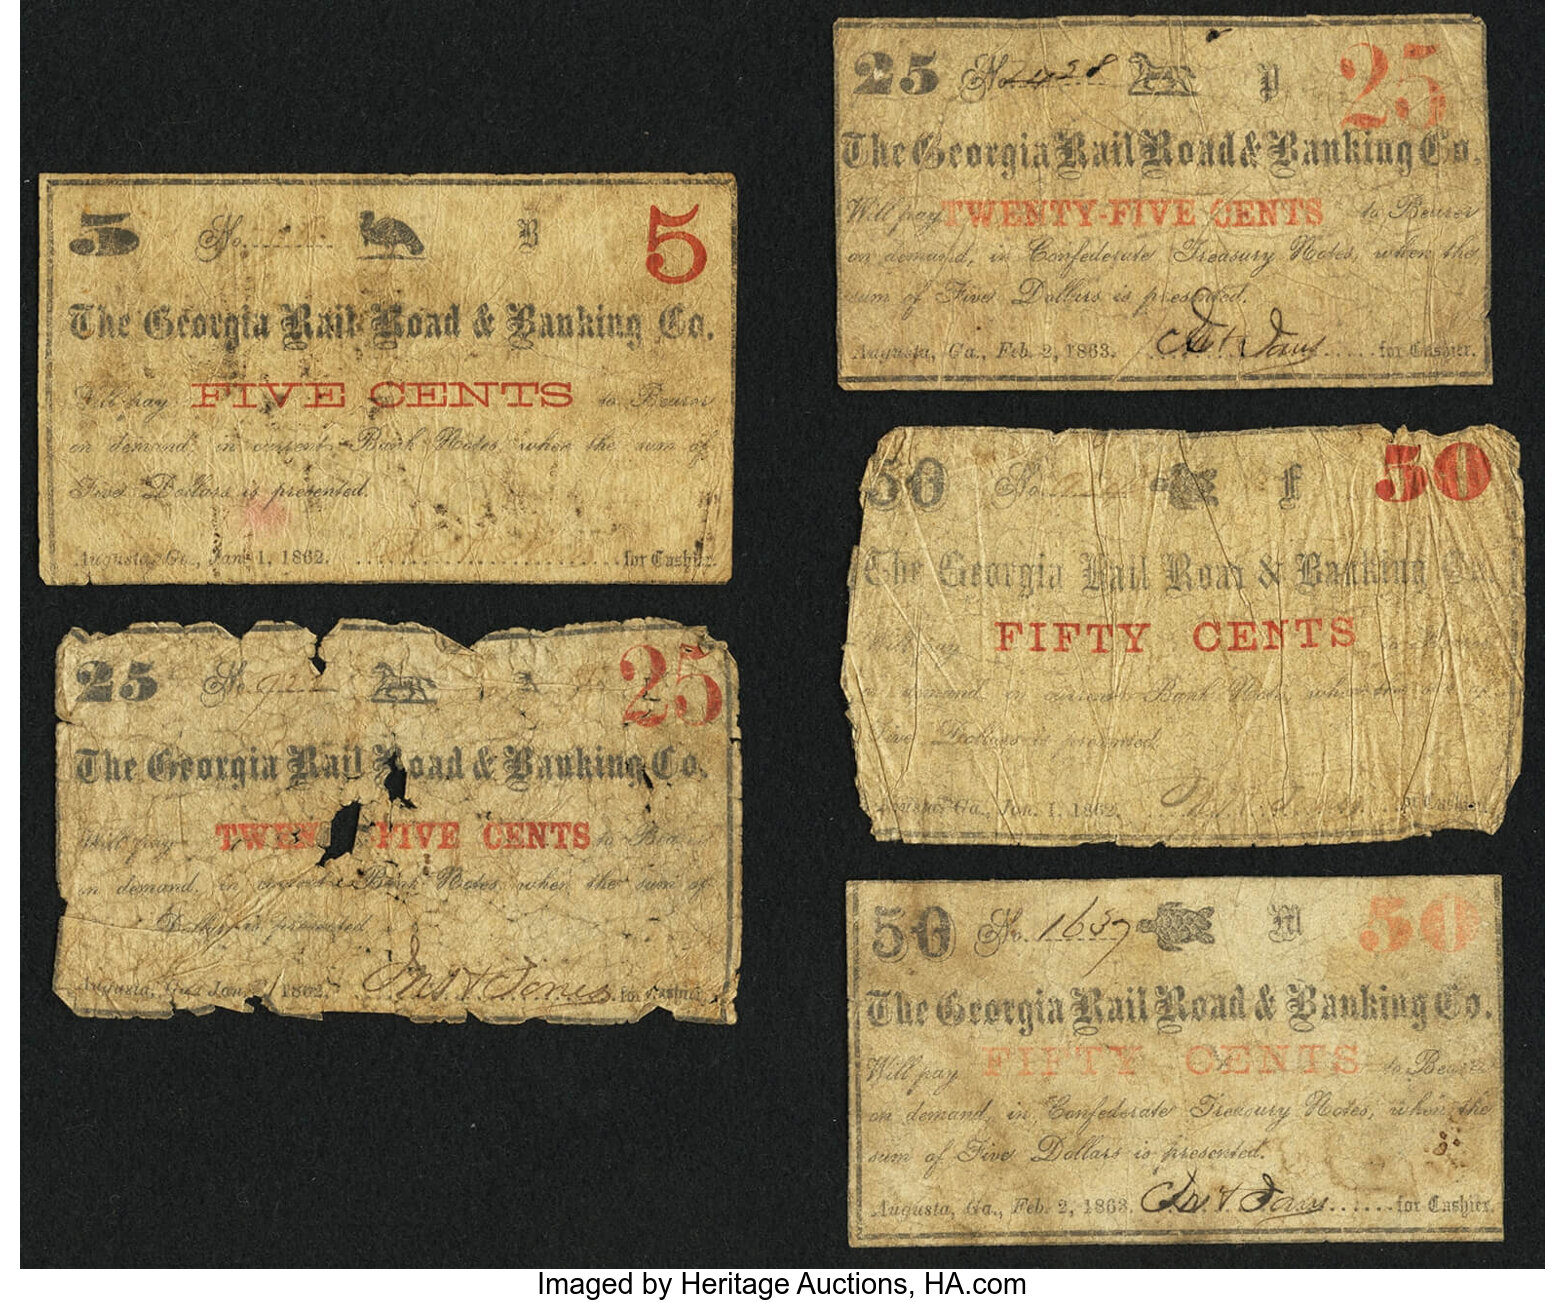 5 No. B 5
The Georgia Rail Road & Banking Co.
Will pay FIVE CENTS to Bearer
on demand, in current Bank Notes, when the sum of
Five Dollars is presented.
Augusta, Ga., Jan. 1, 1862. for Cashier.
25 No. A 25
The Georgia Rail Road & Banking Co.
Will pay TWEN FIVE CENTS to Bea
on demand, in current Bank Notes, when the sum of
Dollars is presented
Augusta, Ga., Jan. 1862. Jno. T. Jones for Cashier.
25 No. P 25
The Georgia Rail Road & Banking Co.
Will pay TWENTY-FIVE CENTS to Bearer
on demand, in Confederate Treasury Notes, when the
sum of Five Dollars is presented.
Augusta, Ga., Feb. 2, 1863. for Cashier.
50 No. F 50
The Georgia Rail Road & Banking Co.
Will pay FIFTY CENTS
demand, in current Bank Notes, when the
Five Dollars is presented
Augusta, Ga., Jan. 1, 1862. for Cashier
50 No. 1637 M 50
The Georgia Rail Road & Banking Co.
Will pay FIFTY CENTS to Bearer
on demand, in Confederate Treasury Notes, when the
sum of Five Dollars is presented.
Augusta, Ga., Feb. 2, 1863. Jno. T. Jones for Cashier.
Imaged by Heritage Auctions, HA.com